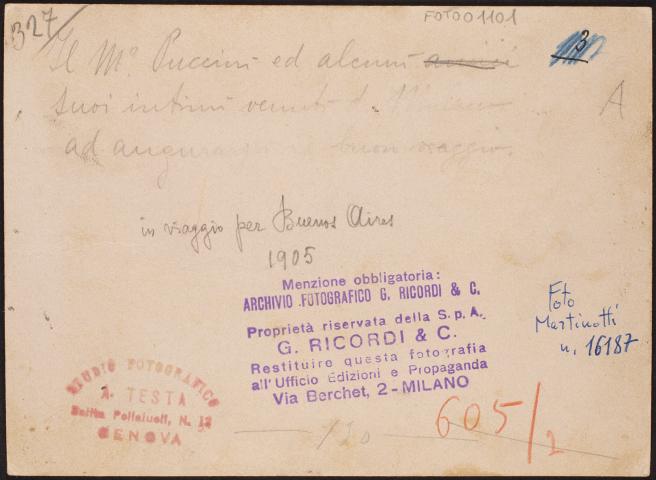 327
FOTO01101
3
Il M° Puccini ed alcuni amici
suoi intimi venuti da Milano
A
ad augurargli il buon viaggio.
in viaggio per Buenos Aires
1905
Menzione obbligatoria:
ARCHIVIO FOTOGRAFICO G. RICORDI & C.
Proprietà riservata della S.p.A.
G. RICORDI & C.
Restituire questa fotografia
all'Ufficio Edizioni e Propaganda
Via Berchet, 2 - MILANO
Foto
Martinotti
n. 16187
STUDIO FOTOGRAFICO
A. TESTA
Salita Pollaiuoli, N. 13
GENOVA
605/2